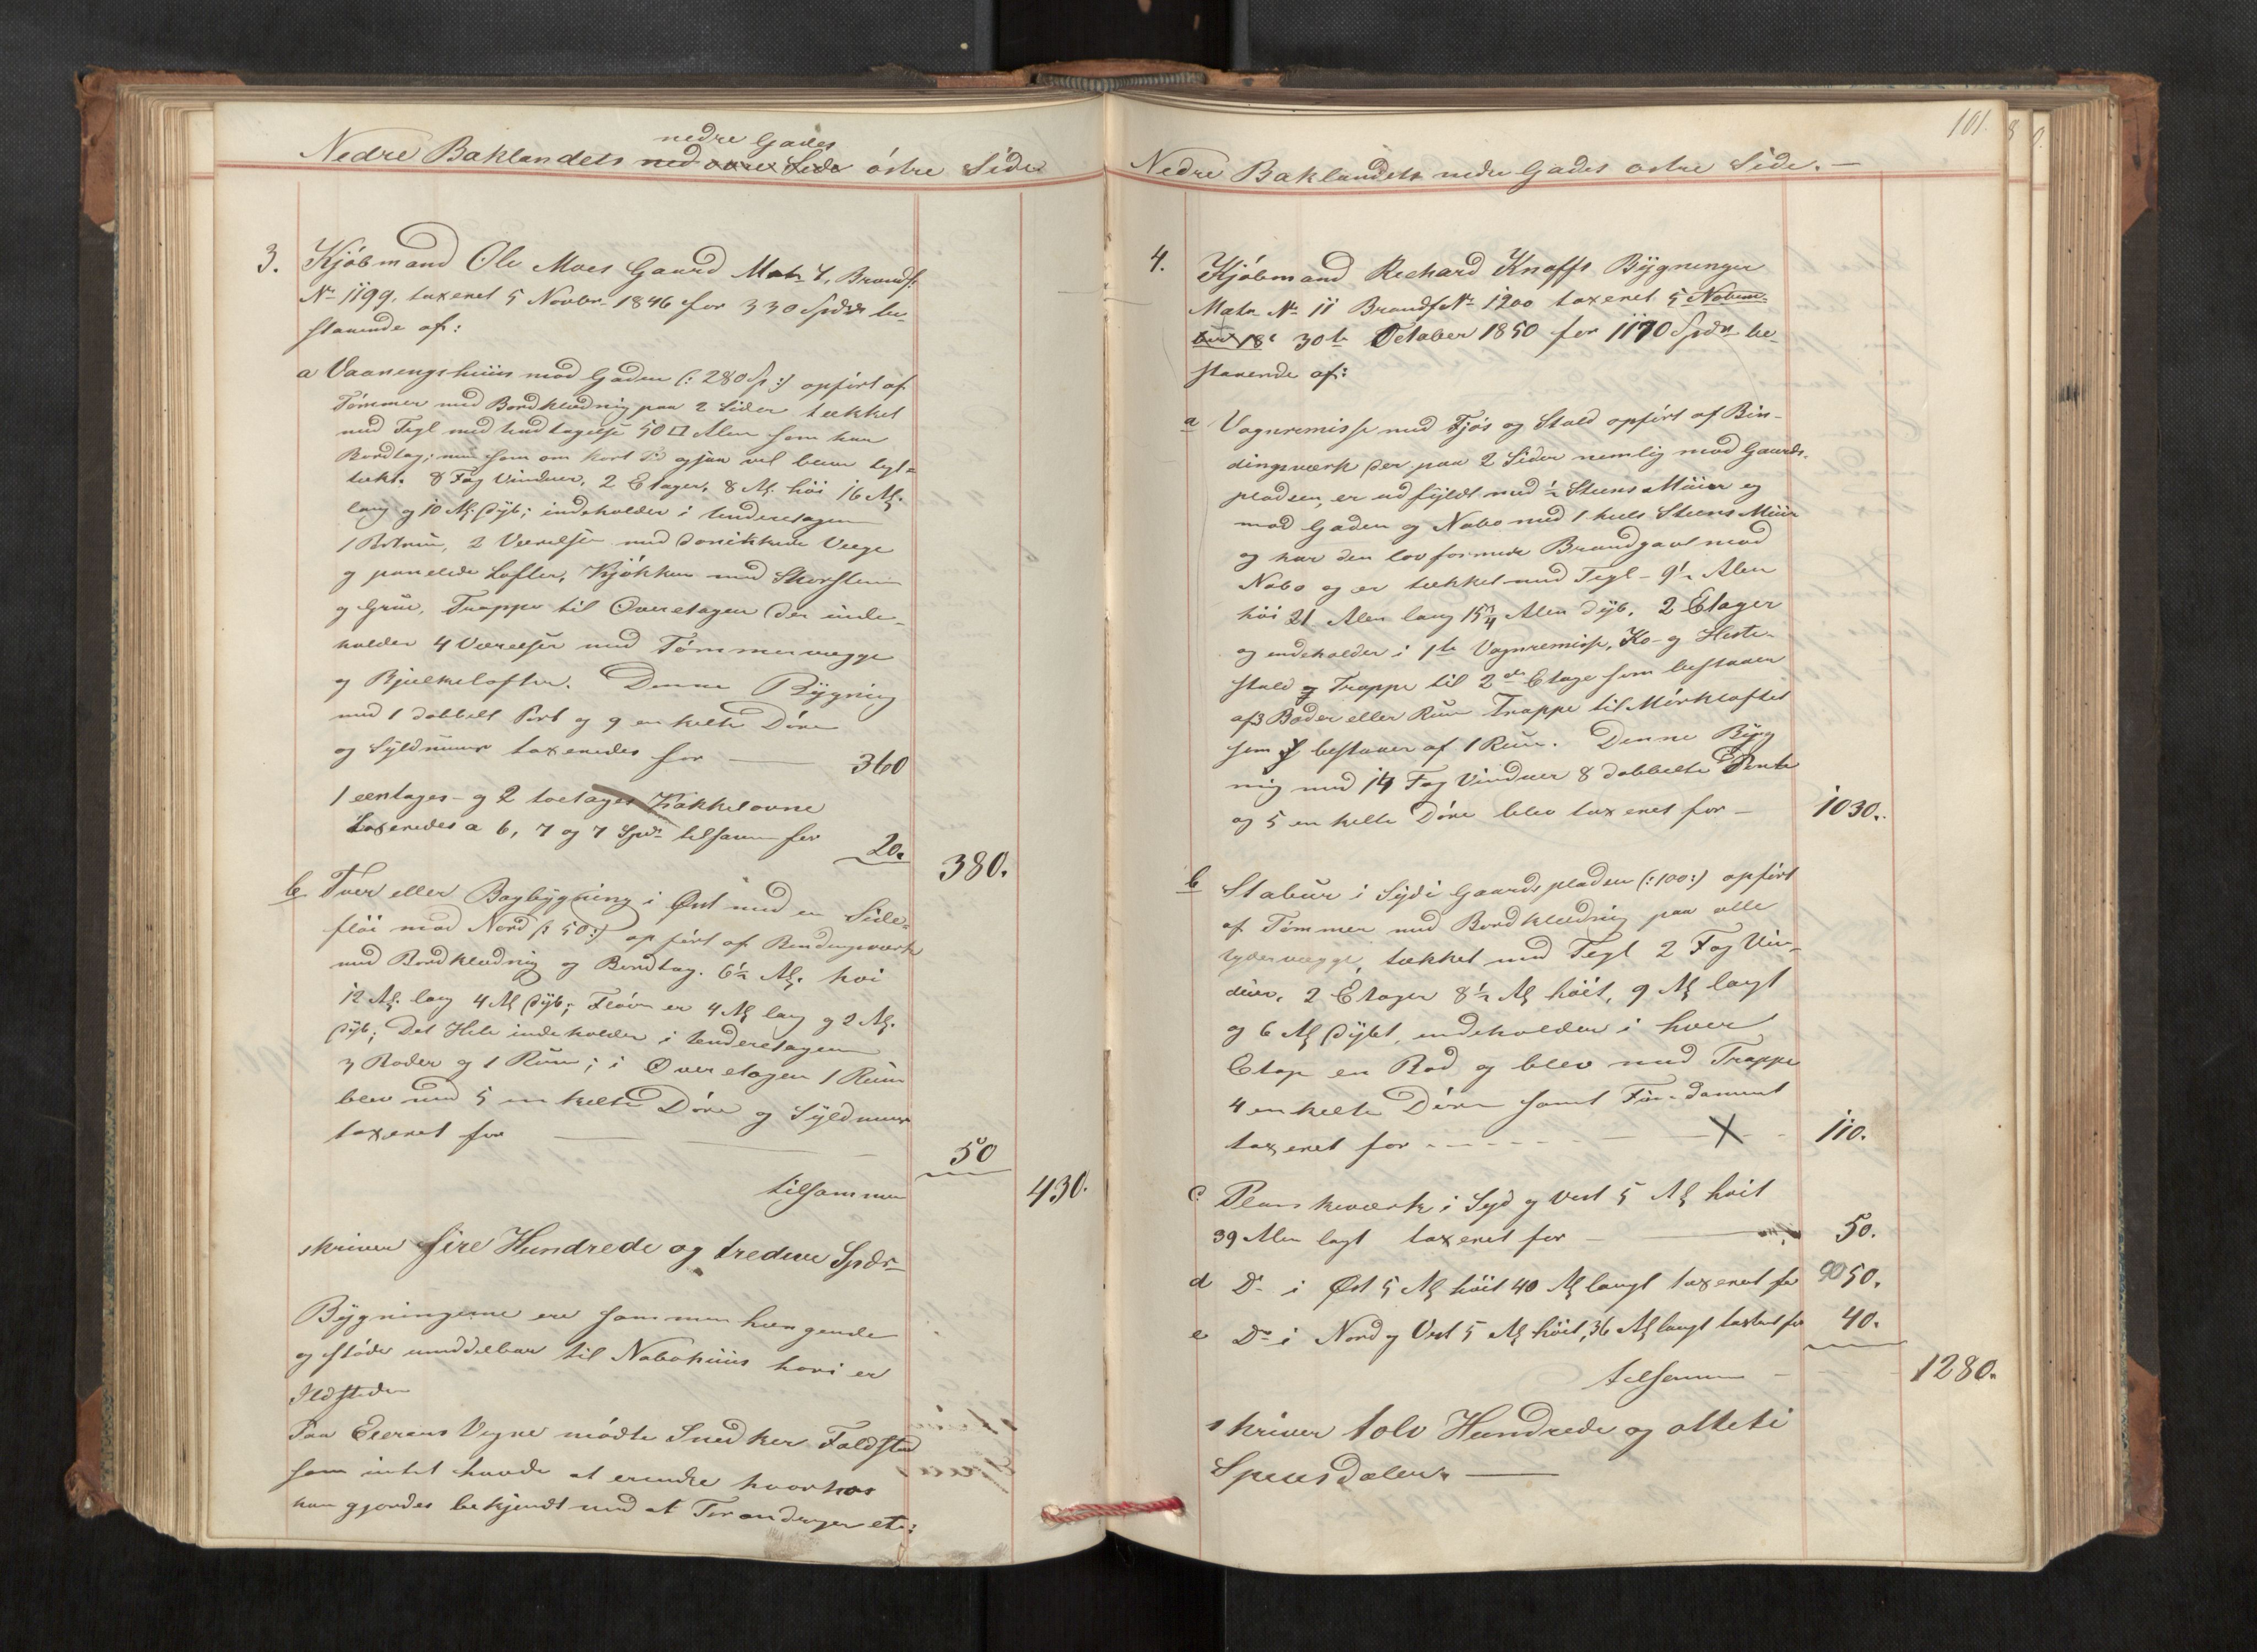 nedre Gades
Nedre Baklandets ned øvre Side østre Side
3. Kjøbmand Ole Moes Gaard Matr. 4, Brandf:
No 1199, taxeret 5 Novbr. 1846 for 330 Spdr be-
staaende af:
a Vaaningshuus mod Gaden (: 280 Sp :) opført af
Tømmer med Bordklædning paa 2 Sider tækket
med Tegl med Undtagelse 50 □ Alen som har
Bordtag; men som om kort Tid ogsaa vil blive tegl=
tækt. 8 Fag Vinduer, 2 Etager, 8 Al. høi 16 Al.
lang og 10 Al. dyb; indeholder i Underetagen
1 Bolrum, 2 Værelser med Vægge
og panelede Lofter, Kjøkken med Skorsteen
og Grue, Trappe til Overetagen der inde-
holder 4 Værelser med Tømmervægge
og Bjelkelofter. Denne Bygning
med 1 dobbelt Port og 9 enkelte Døre
og Syldmuur taxeredes for — 360
1 eentages- og 2 toetages Kakkelovne
taxeredes a 6, 7 og 7 Spdr tilsammen for 20.
380.
b Tver eller Bagbygning i Øst med en Side-
fløi mod Nord (: 50 :) opført af Bindingsværk
med Bordklædning og Bordtag. 6½ Al. høi
12 Al. lang 4 Al dyb; Fløien er 4 Al lang og 2 Al.
dyb; Det Hele indeholder i Underetagen
3 Boder og 1 Rum; i Overetagen 1 Rum
blev med 5 enkelte Døre og Syldmuur
taxeret for — 50
tilsammen 430.
skriver fire Hundrede og tredive Spdr
Bygningerne ere sammenhængende
og støder umiddelbar til Nabohuus hvori er
Ildsteder
Paa Eierens Vegne mødte Snedker Faldstad
som intet havde at erindre hvorhos
han gjordes bekjendt med at Forandringer etc:
101.
Nedre Baklandets nedre Gades østre Side. —
4. Kjøbmand Richard Knoffs Bygninger
Matr No 11 Brandf No 1200 taxeret 5 Novem-
ber 18 30te October 1850 for 1170 Spdr be-
staaende af:
a Vognremisse med Fjøs og Stald opført af Bin-
dingsværk der paa 2 Sider nemlig mod Gaards-
pladsen, er udfyldt med ½ Steens Muur og
mod Gaden og Nabo med 1 heel Steens Muur
og har den lovformede Brandgavl mod
Nabo og er tækket med Tegl - 9½ Alen
høi 21 Alen lang 15¾ Alen dyb. 2 Etager
og indeholder i 1te Vognremisse, Ko- og Heste-
stald og Trappe til 2den Etage som bestaaer
af 3 Boder eller Rum Trappe til Mørkloftet
som bestaaer af 1 Rum. Denne Byg
ning med 14 Fag Vinduer 8 dobbelte Porte
og 5 enkelte Døre blev taxeret for — 1030.
b Stabur i Syd i Gaardspladsen (: 100 :) opført
af Tømmer med Bordklædning paa alle
Ydervægge, tækket med Tegl 2 Fag Vin-
duer, 2 Etager 8½ Al høit, 9 Al langt
og 6 Al dybt, indeholder i hver
Etage en Bod og blev med Trappe
4 enkelte Døre samt Fundament
taxeret for - - - - X - 110.
c Plankeværk i Syd og Vest 5 Al høit
39 Alen langt taxeret for — 50.
d Do i Øst 5 Al høit 40 Al langt taxeret for 50.
e Do i Nord og Vest 5 Al høit, 36 Al langt taxeret for 40.
tilsammen — 1280.
skriver tolv Hundrede og otteti
Speciesdaler. —